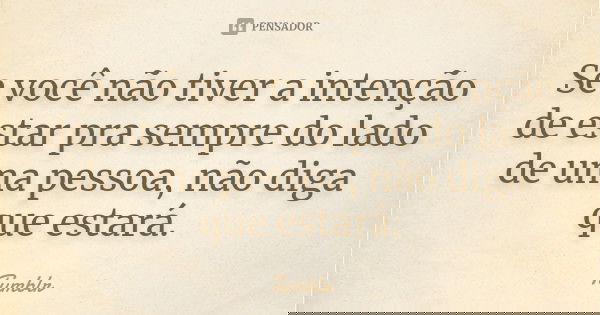 PENSADOR
Se você não tiver a intenção
de estar pra sempre do lado
de uma pessoa, não diga
que estará.
Tumblr